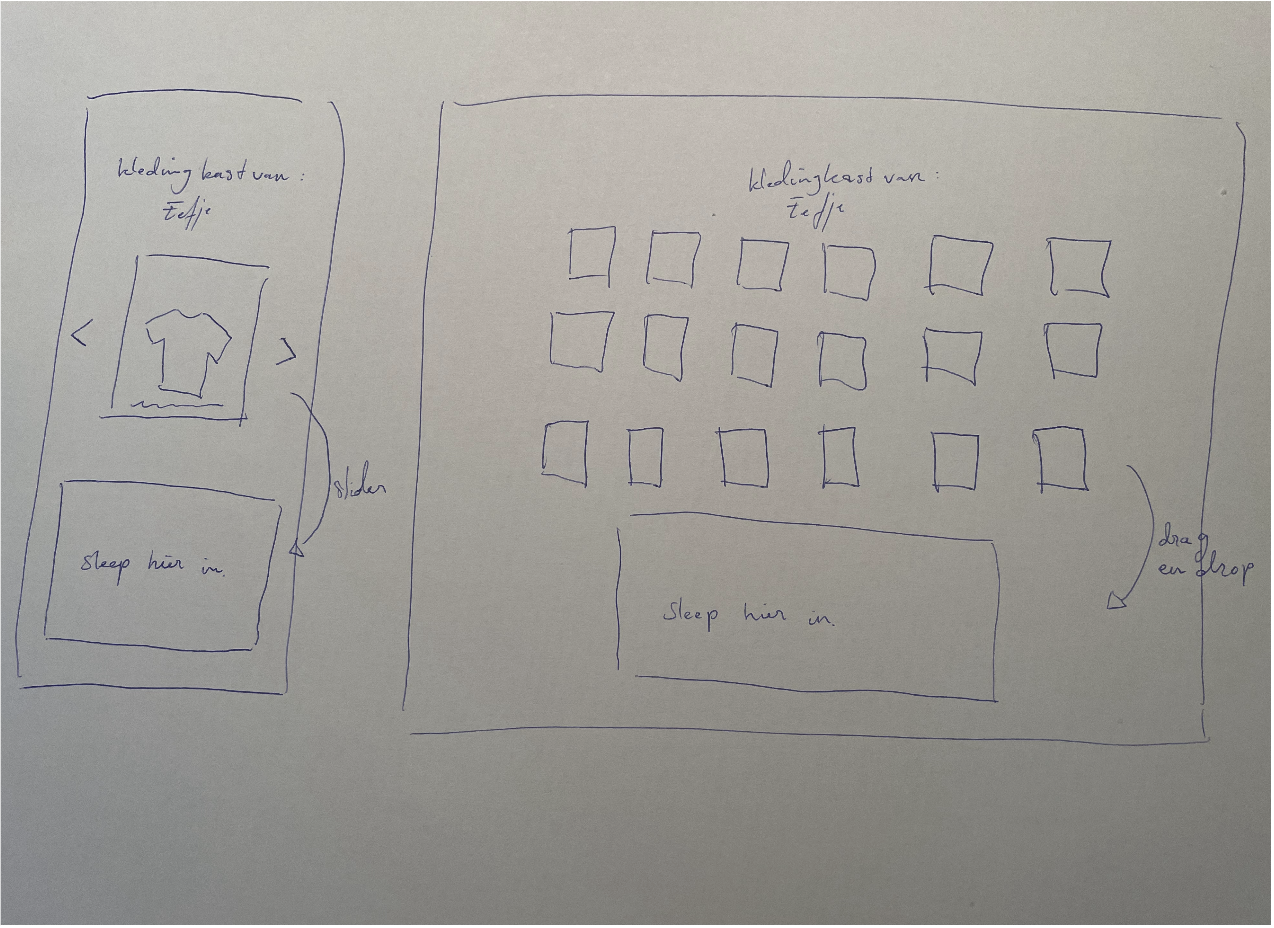 kledingkast van:
Eefje
<
>
slider
Sleep hier in.
kledingkast van:
Eefje
drag
en drop
Sleep hier in.